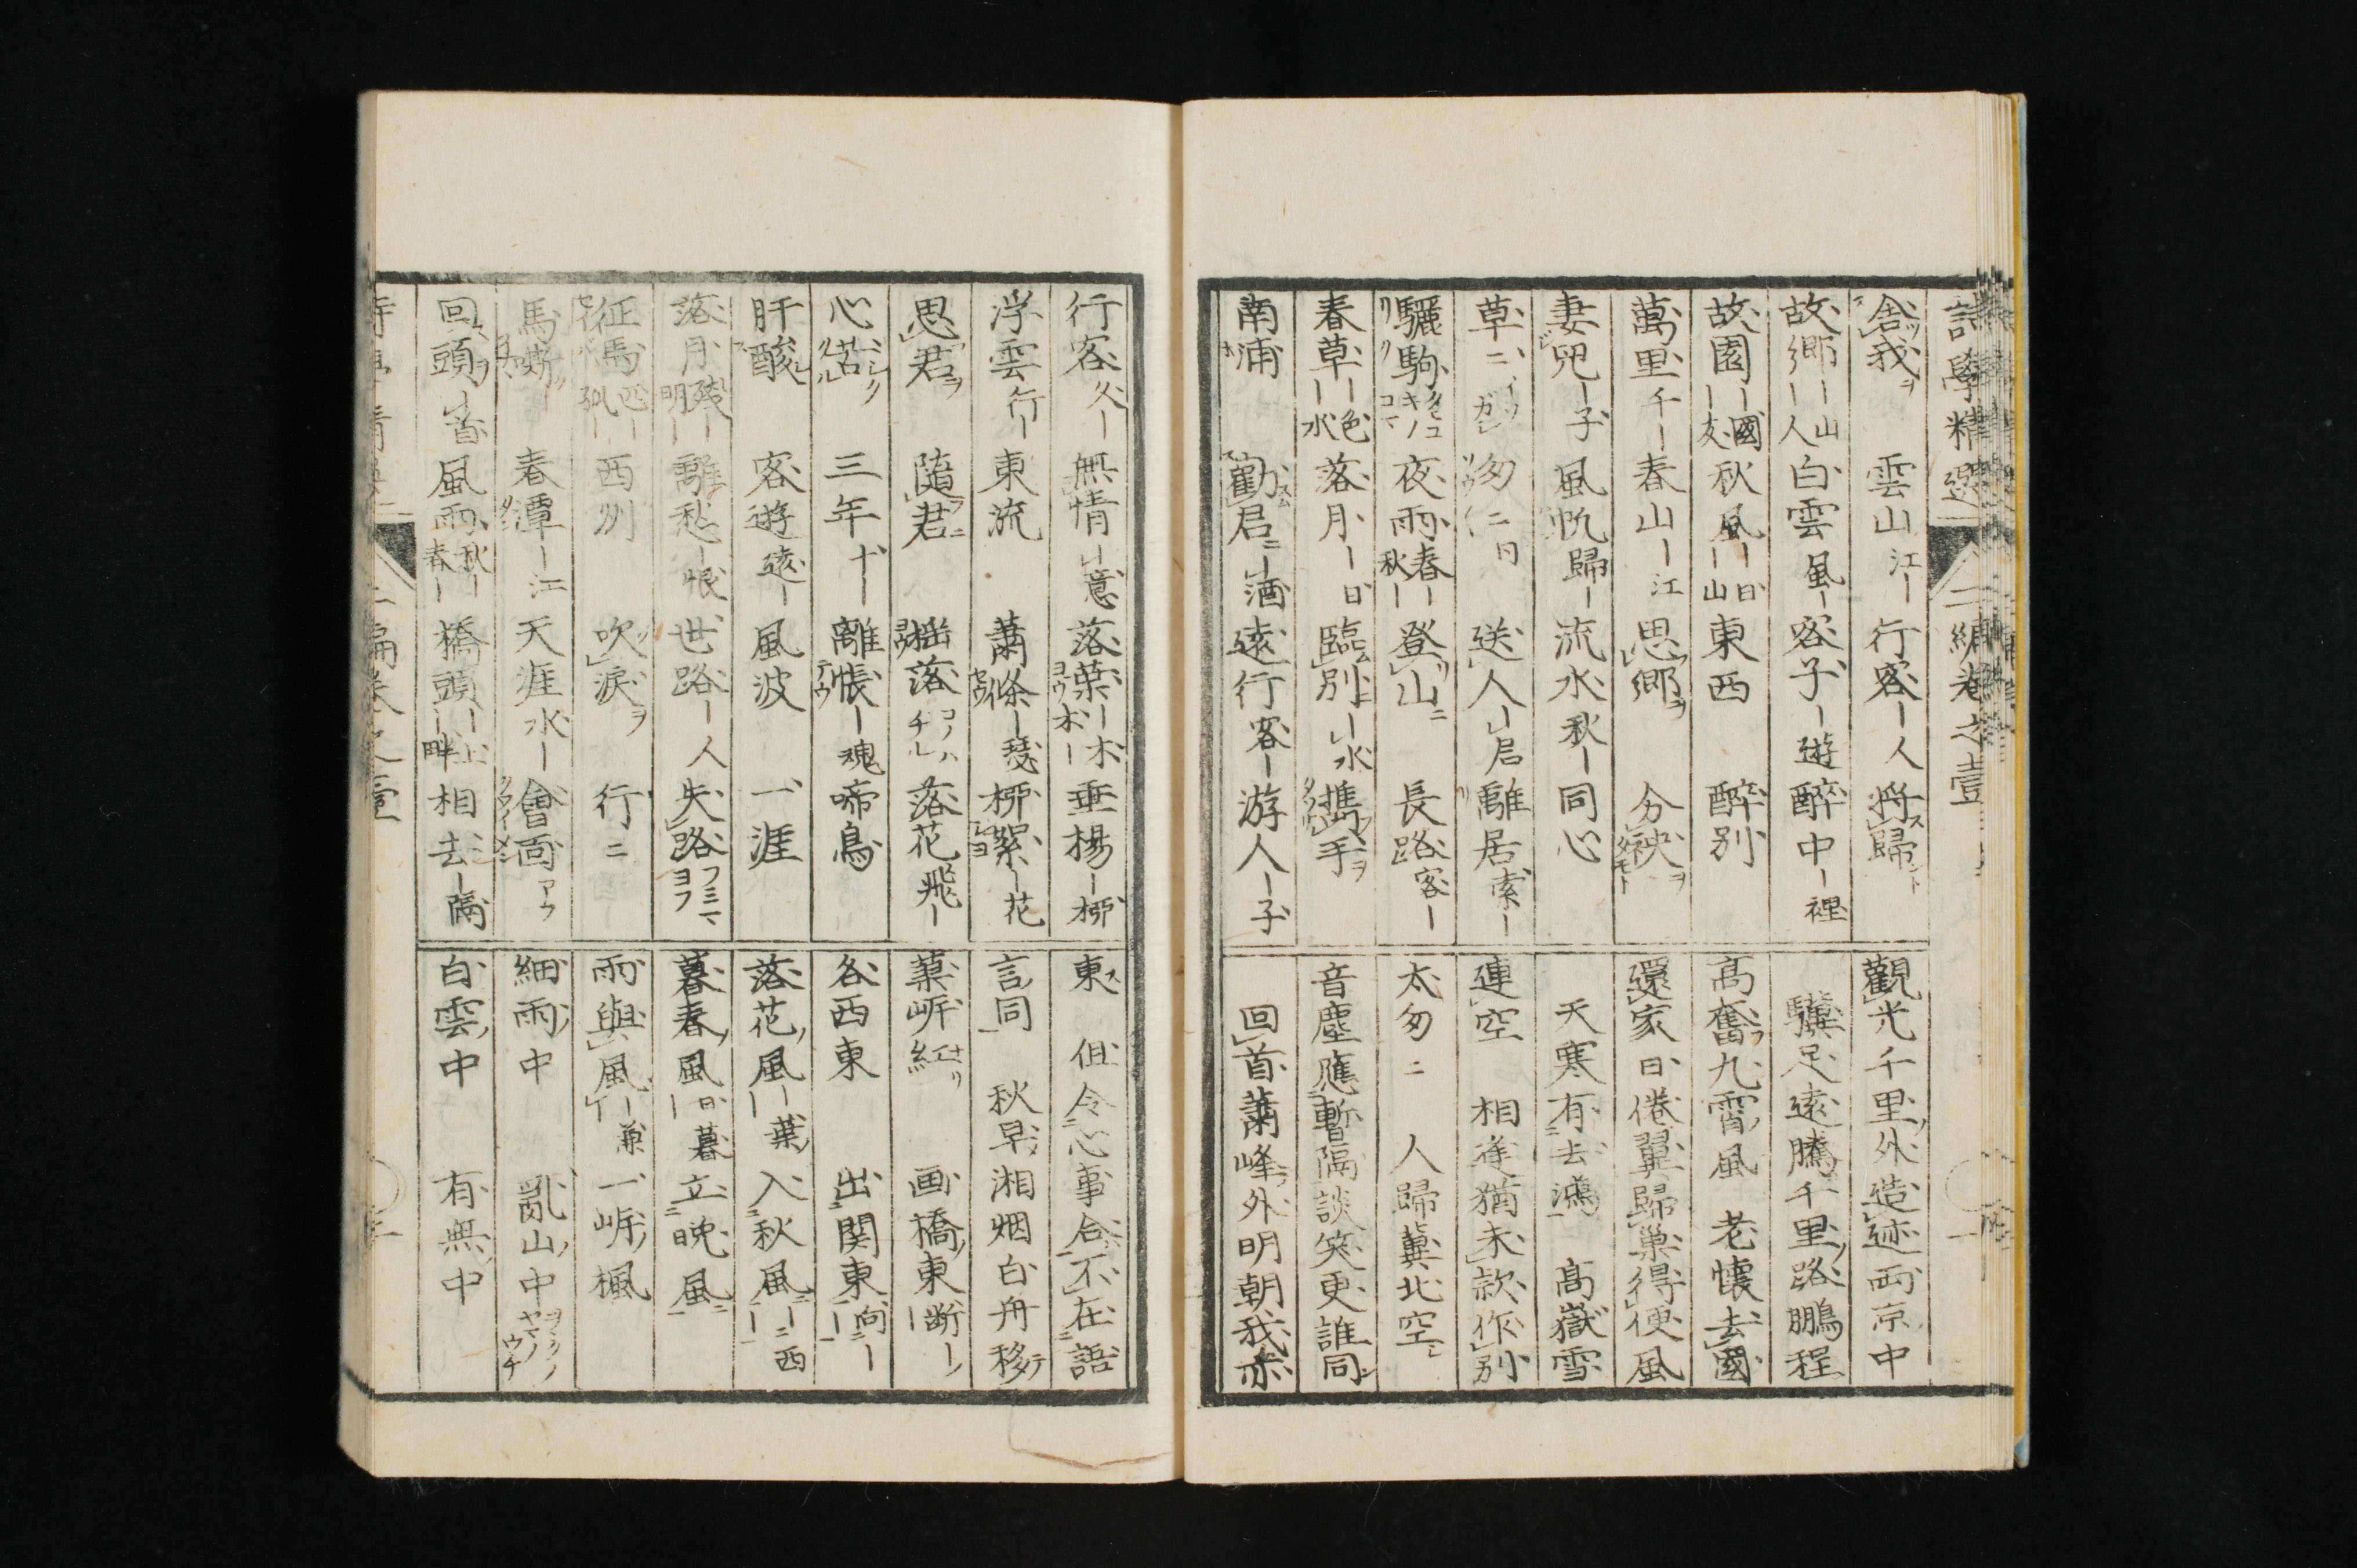 詩學精選 二編卷之壹
舎我ヲ 雲山江ー 行客ー人 將歸スント
故郷ー山ー人 白雲風ー 客子ー遊 醉中ー裡
故園ー國ー友 秋風ー日ー山 東西 醉別
萬里千ー 春山ー江 思郷ヲ 分袂ヲタモト
妻兒ー子 風帆歸ー 流水秋ー 同心
草ニ 匆ニ 送人ー君 離居索ー
驪駒 夜雨春ー秋ー 登山ニ 長路客ー
春草ー色ー水 落月ー日 臨別ニー水 携手ヲ
南浦 勸君ニー酒 遠行客ー 游人ー子
觀光千里外造迹両京中
驥足遠騰千里路鵬程
高奮九霄風 老懐去國
還家日倦翼歸巣得便風
天寒有去鴻 高嶽雪
連空 相逢猶未款作別
太匆ニ 人歸冀北空
音塵應暫隔談笑更誰同
回首蕭峰外明朝我亦
行客久ー 無情ー意 落葉ー木 垂楊ー栁
浮雲行ー 東流 蕭條ー殘 栁絮ー花
思君ヲ 隨君ニ 揺落コノハチル 落花飛ー
心苦 三年十ー 離悵ー魂 啼鳥
肝酸 客遊遠ー 風波 一涯
落月殘ー明ー 離愁ー恨 世路ー人 失路フミマヨフ
征馬匹ー孤ー 西州 吹涙ヲ 行ニ
馬嘶 春潭ー江 天涯水ー 會面
回頭ヲー首 風雨秋ー春ー 橋頭ー上ー畔 相去ー隔
東 但令心事合不在語
言同 秋早湘烟白舟移テ
葉岸紅ナリ 画橋東断ー
各西東 出関東向ー
落花風ー葉 入秋風ーニ西
暮春風ー日暮 立晩風
雨與風ー兼 一岸楓
細雨中 亂山中
白雲中 有無中